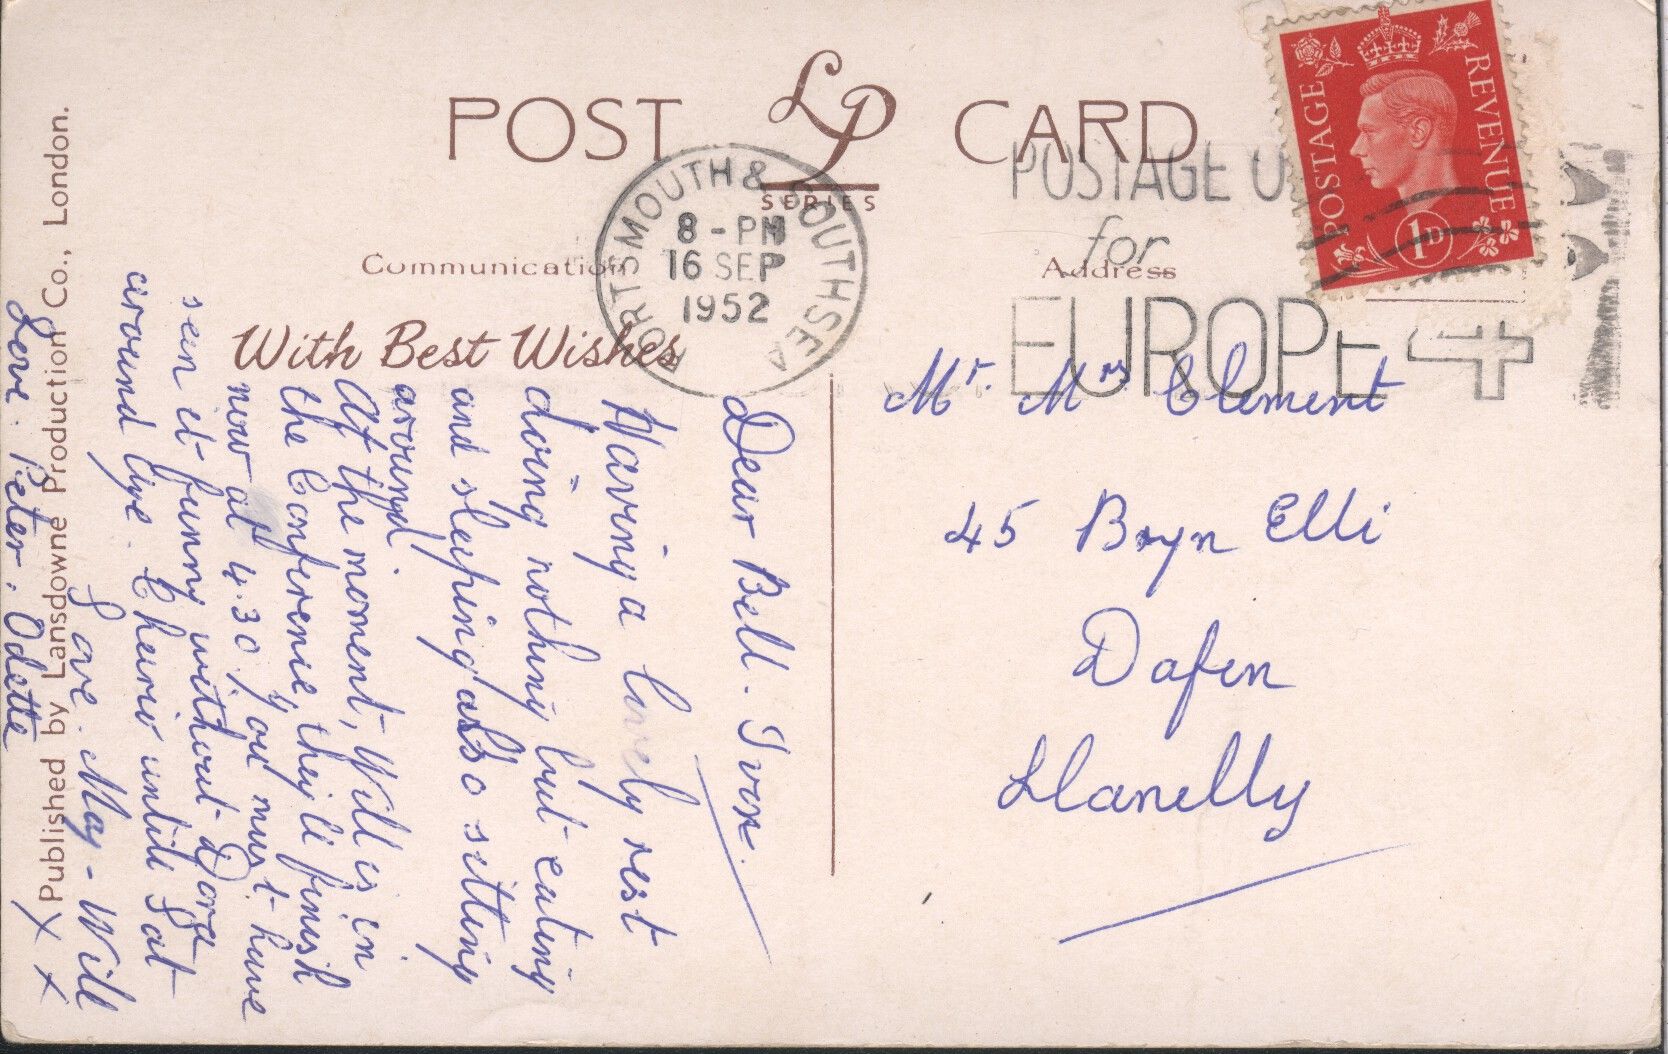 POST LP CARD
SERIES
Communication
Address
With Best Wishes
PORTSMOUTH & SOUTHSEA
8 - PM
16 SEP
1952
POSTAGE
for
EUROPE 4
POSTAGE REVENUE
1D
Mr. Mrs Clement
45 Bryn Elli
Dafen
Llanelly
Dear Bell. Ivor.
Having a lovely rest
doing nothing but eating
and sleeping also sitting
around.
At the moment, Will is in
the Conference, they'll finish
now at 4.30, you must have
seen it funny without Dora
around Lye. Cheerio until Sat
Love. May - Will
Love. Peter. Odette
X X
Published by Lansdowne Production Co., London.